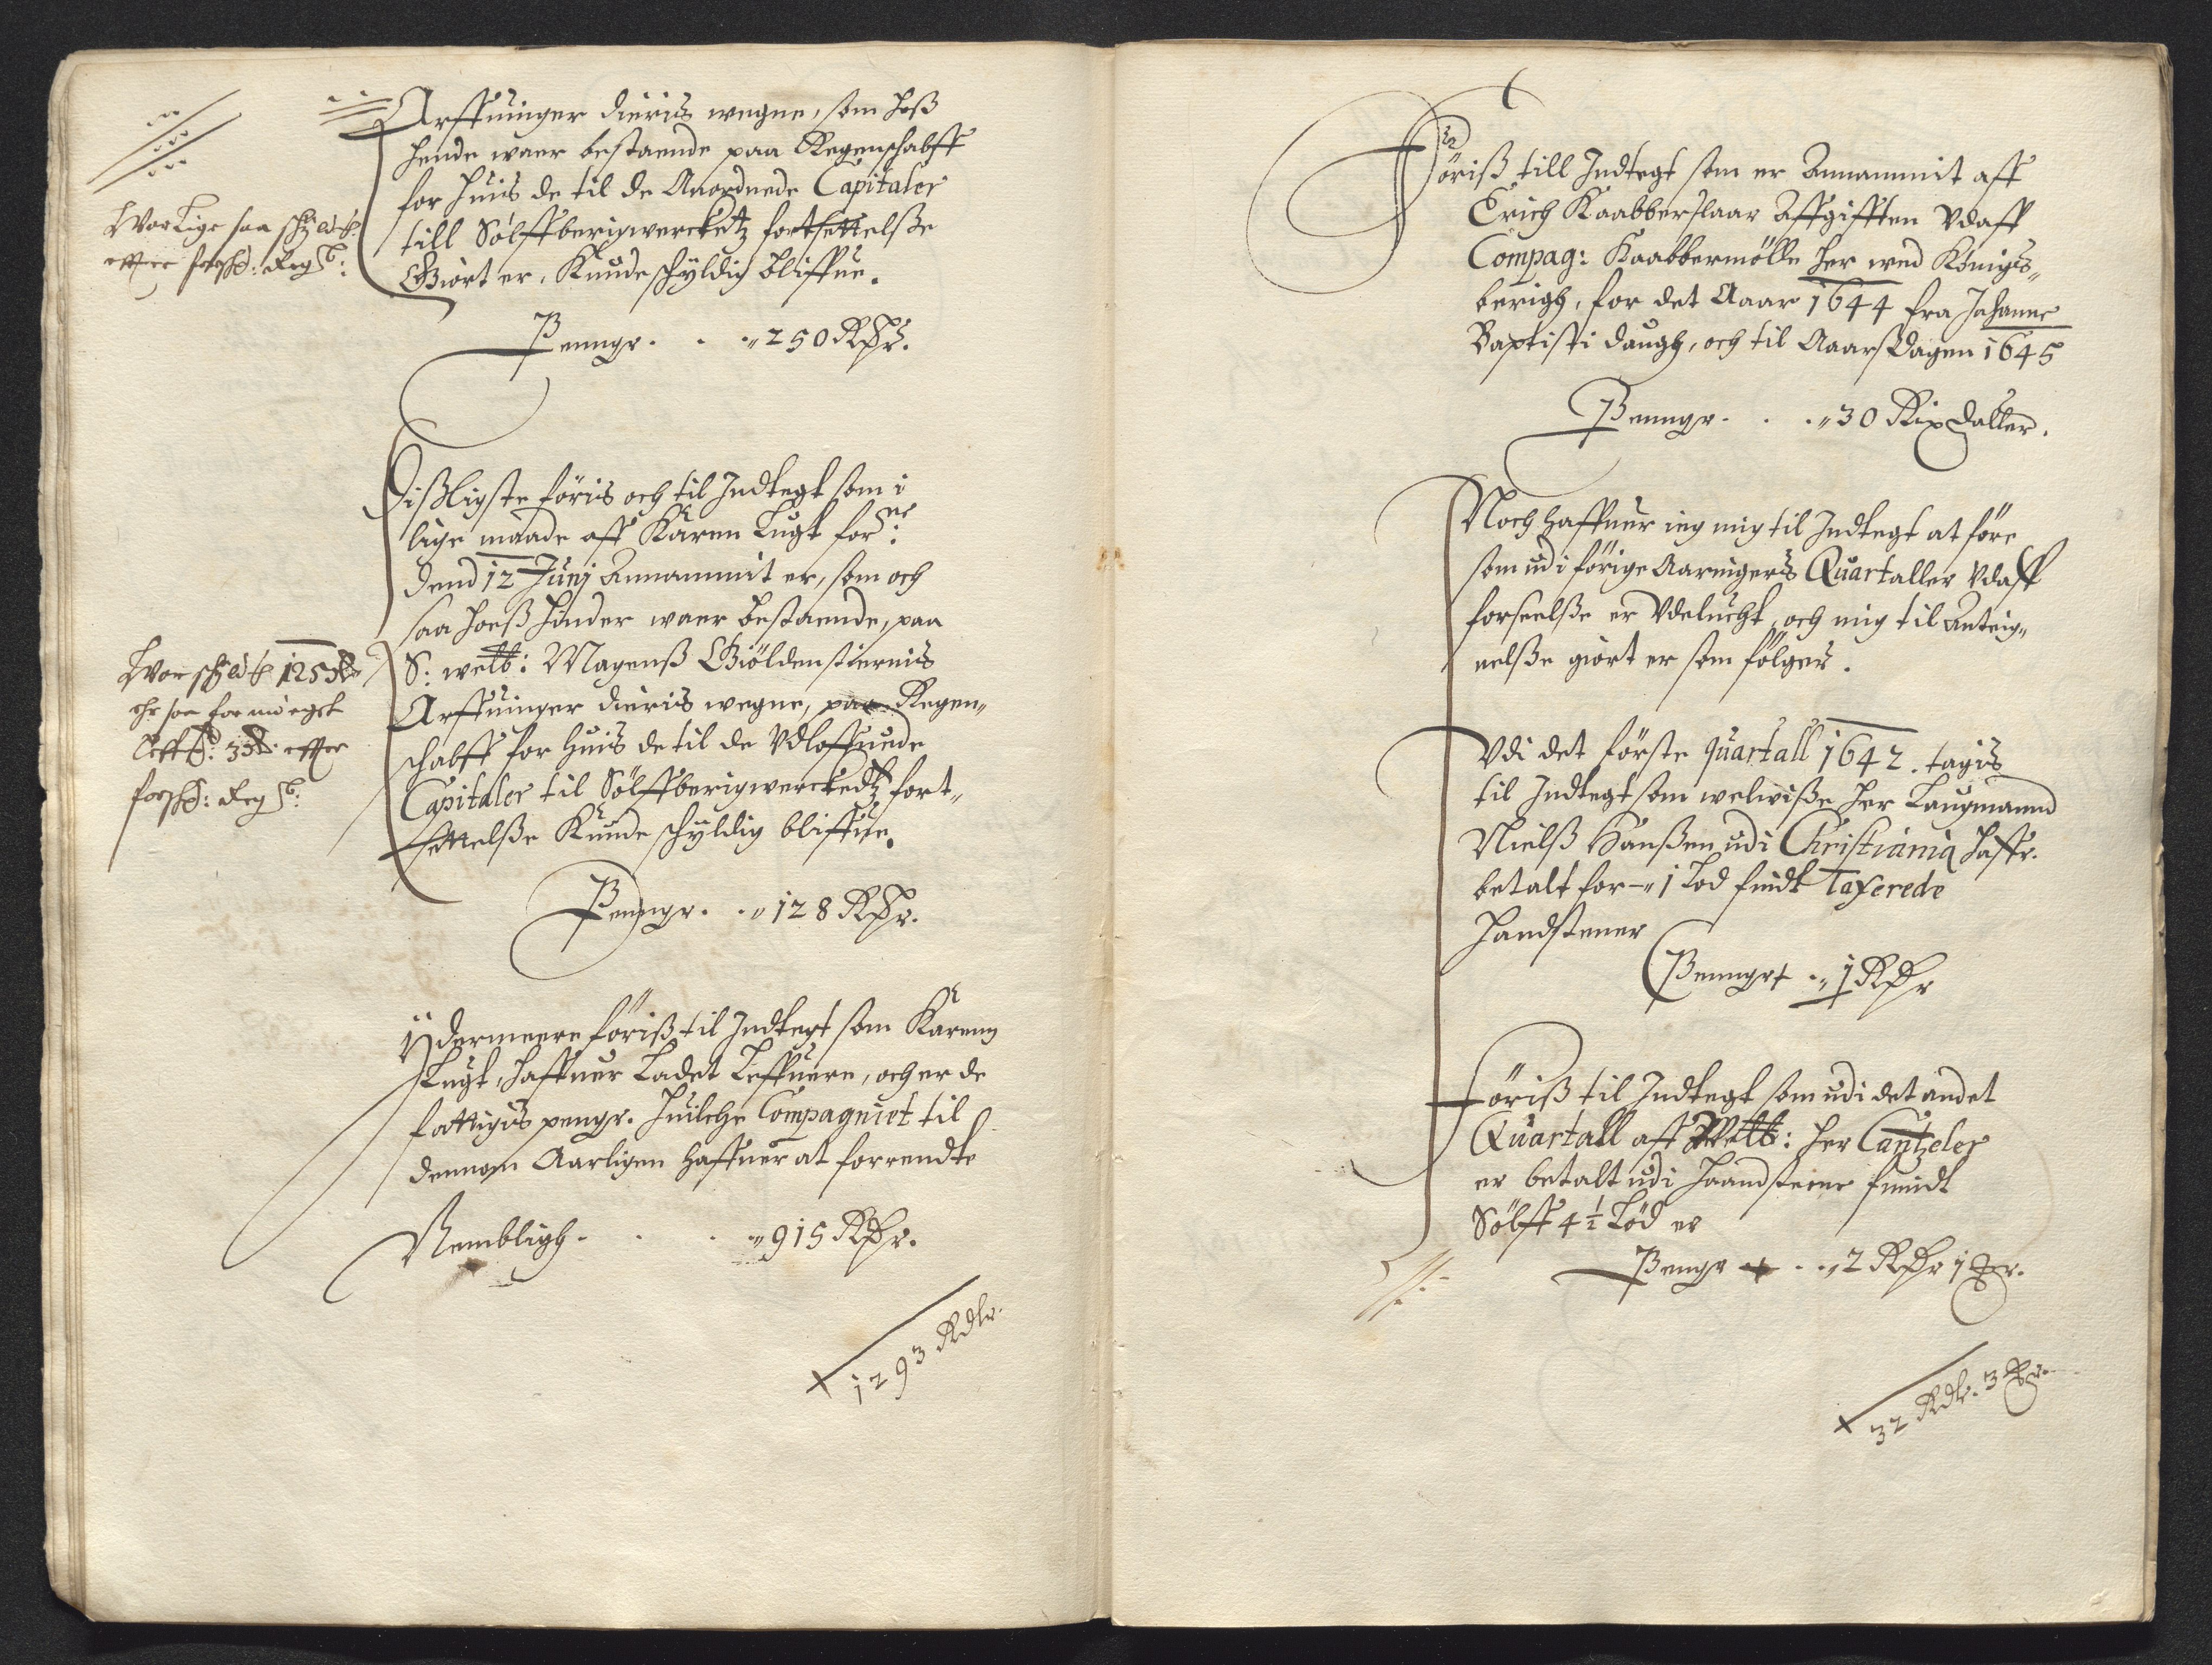 Arffuinger dieris wegne, som hoß
hende waer bestaende paa Regenschabff
for huis de til de Anordnede Capitaler
till Sölffberigwercketz fortsettelße
Giort er, Kunde schÿldig bliffue.
Penngr. . . 250 RDr.
War Lige saa schÿldig
effter forschr: Regsb:
Dißligste föris och til Indtegt som i
lige maade aff Karen Lugt forne:
dend 12 Junj Annammit er, som och
saa hoeß hinder waer bestaende, paa
S: welb: Magenß Giöldenstiernis
Arffuinger dieris wegne, paa Regen„
schabff for huis de til de Vdloffuede
Capitaler til Sölffberigwerckedtz fort„
settelße Kunde schÿldig bliffue.
Penngr. . 128 RDr.
War schÿldig 125
effter
forschr: Regsb:
Ÿdermeere föriß til Indtegt som Karenn
Lugt, haffuer Ladet Leffuere, och er de
fattigis pengr. huilche Compagniet til
dennom Aarligen haffuer at forrendte
Nembligh. . . . 915 RDr.
1293 Rdlr.
Föriß till Indtegt som er Annammit aff
Erich Kaabberslaar Affgifften Vdaff
Compag: Kaabbermölle her wed Königs„
berigh, for det Aaar 1644 fra Johanne
Baptisti daugh, och til Aaarsdagen 1645
Penngr. . . 30 Rixdaller.
Noch haffuer ieg mig til Indtegt at före
som udi förige Aaringers Quartaller Vdaff
forseelße er Vdelucht, och mig til Anteig„
nelße giort er som fölger.
Vdi det förste quartall 1642. tagis
til Indtegt som welwiße her Laugmannd
Nielß Hanßen udi Christiania haffr.
betalt for 1 Lod findt Taxerede
handstener
Penngr 1 RDr
Föriß til Indtegt som udi det andet
Quartall aff Welb: her Cantzeler
er betalt udi haandstene fiindt
Sölff 4 1/2 Lod er
Pengr . . 2 RDr 1 Ort.
32 Rdlr. 3